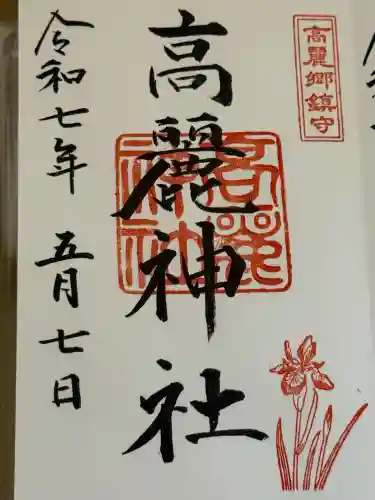 高麗郷鎮守
高麗神社
高麗神社
令和七年 五月七日